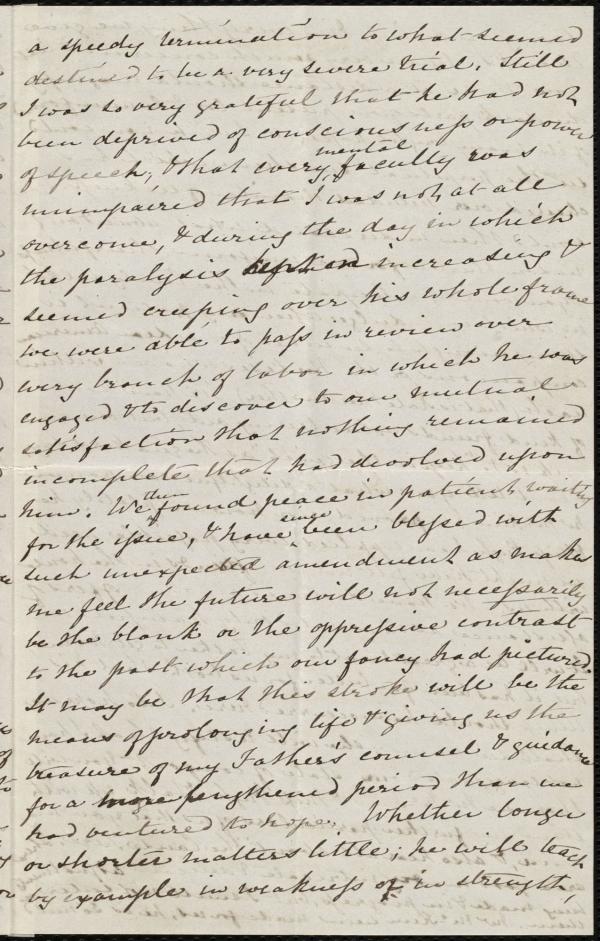 a speedy termination to what seemed
destined to be a very severe trial. Still
I was so very grateful that he had not
been deprived of consciousness or power
of speech, & that every mental faculty was
unimpaired that I was not at all
overcome, & during the day in which
the paralysis kept on increasing &
seemed creeping over his whole frame
we were able to pass in review over
every branch of labor in which he was
engaged & to discover to our mutual
satisfaction that nothing remained
incomplete that had devolved upon
him. We then found peace in patient waiting
for the issue, & have since been blessed with
such unexpected amendment as makes
me feel the future will not necessarily
be the blank or the oppressive contrast
to the past which our fancy had pictured.
It may be that this stroke will be the
means of prolonging life & giving us the
treasure of my Father's counsel & guidance
for a more lengthened period than we
had ventured to hope. Whether longer
or shorter matters little; he will teach
by example in weakness or in strength,